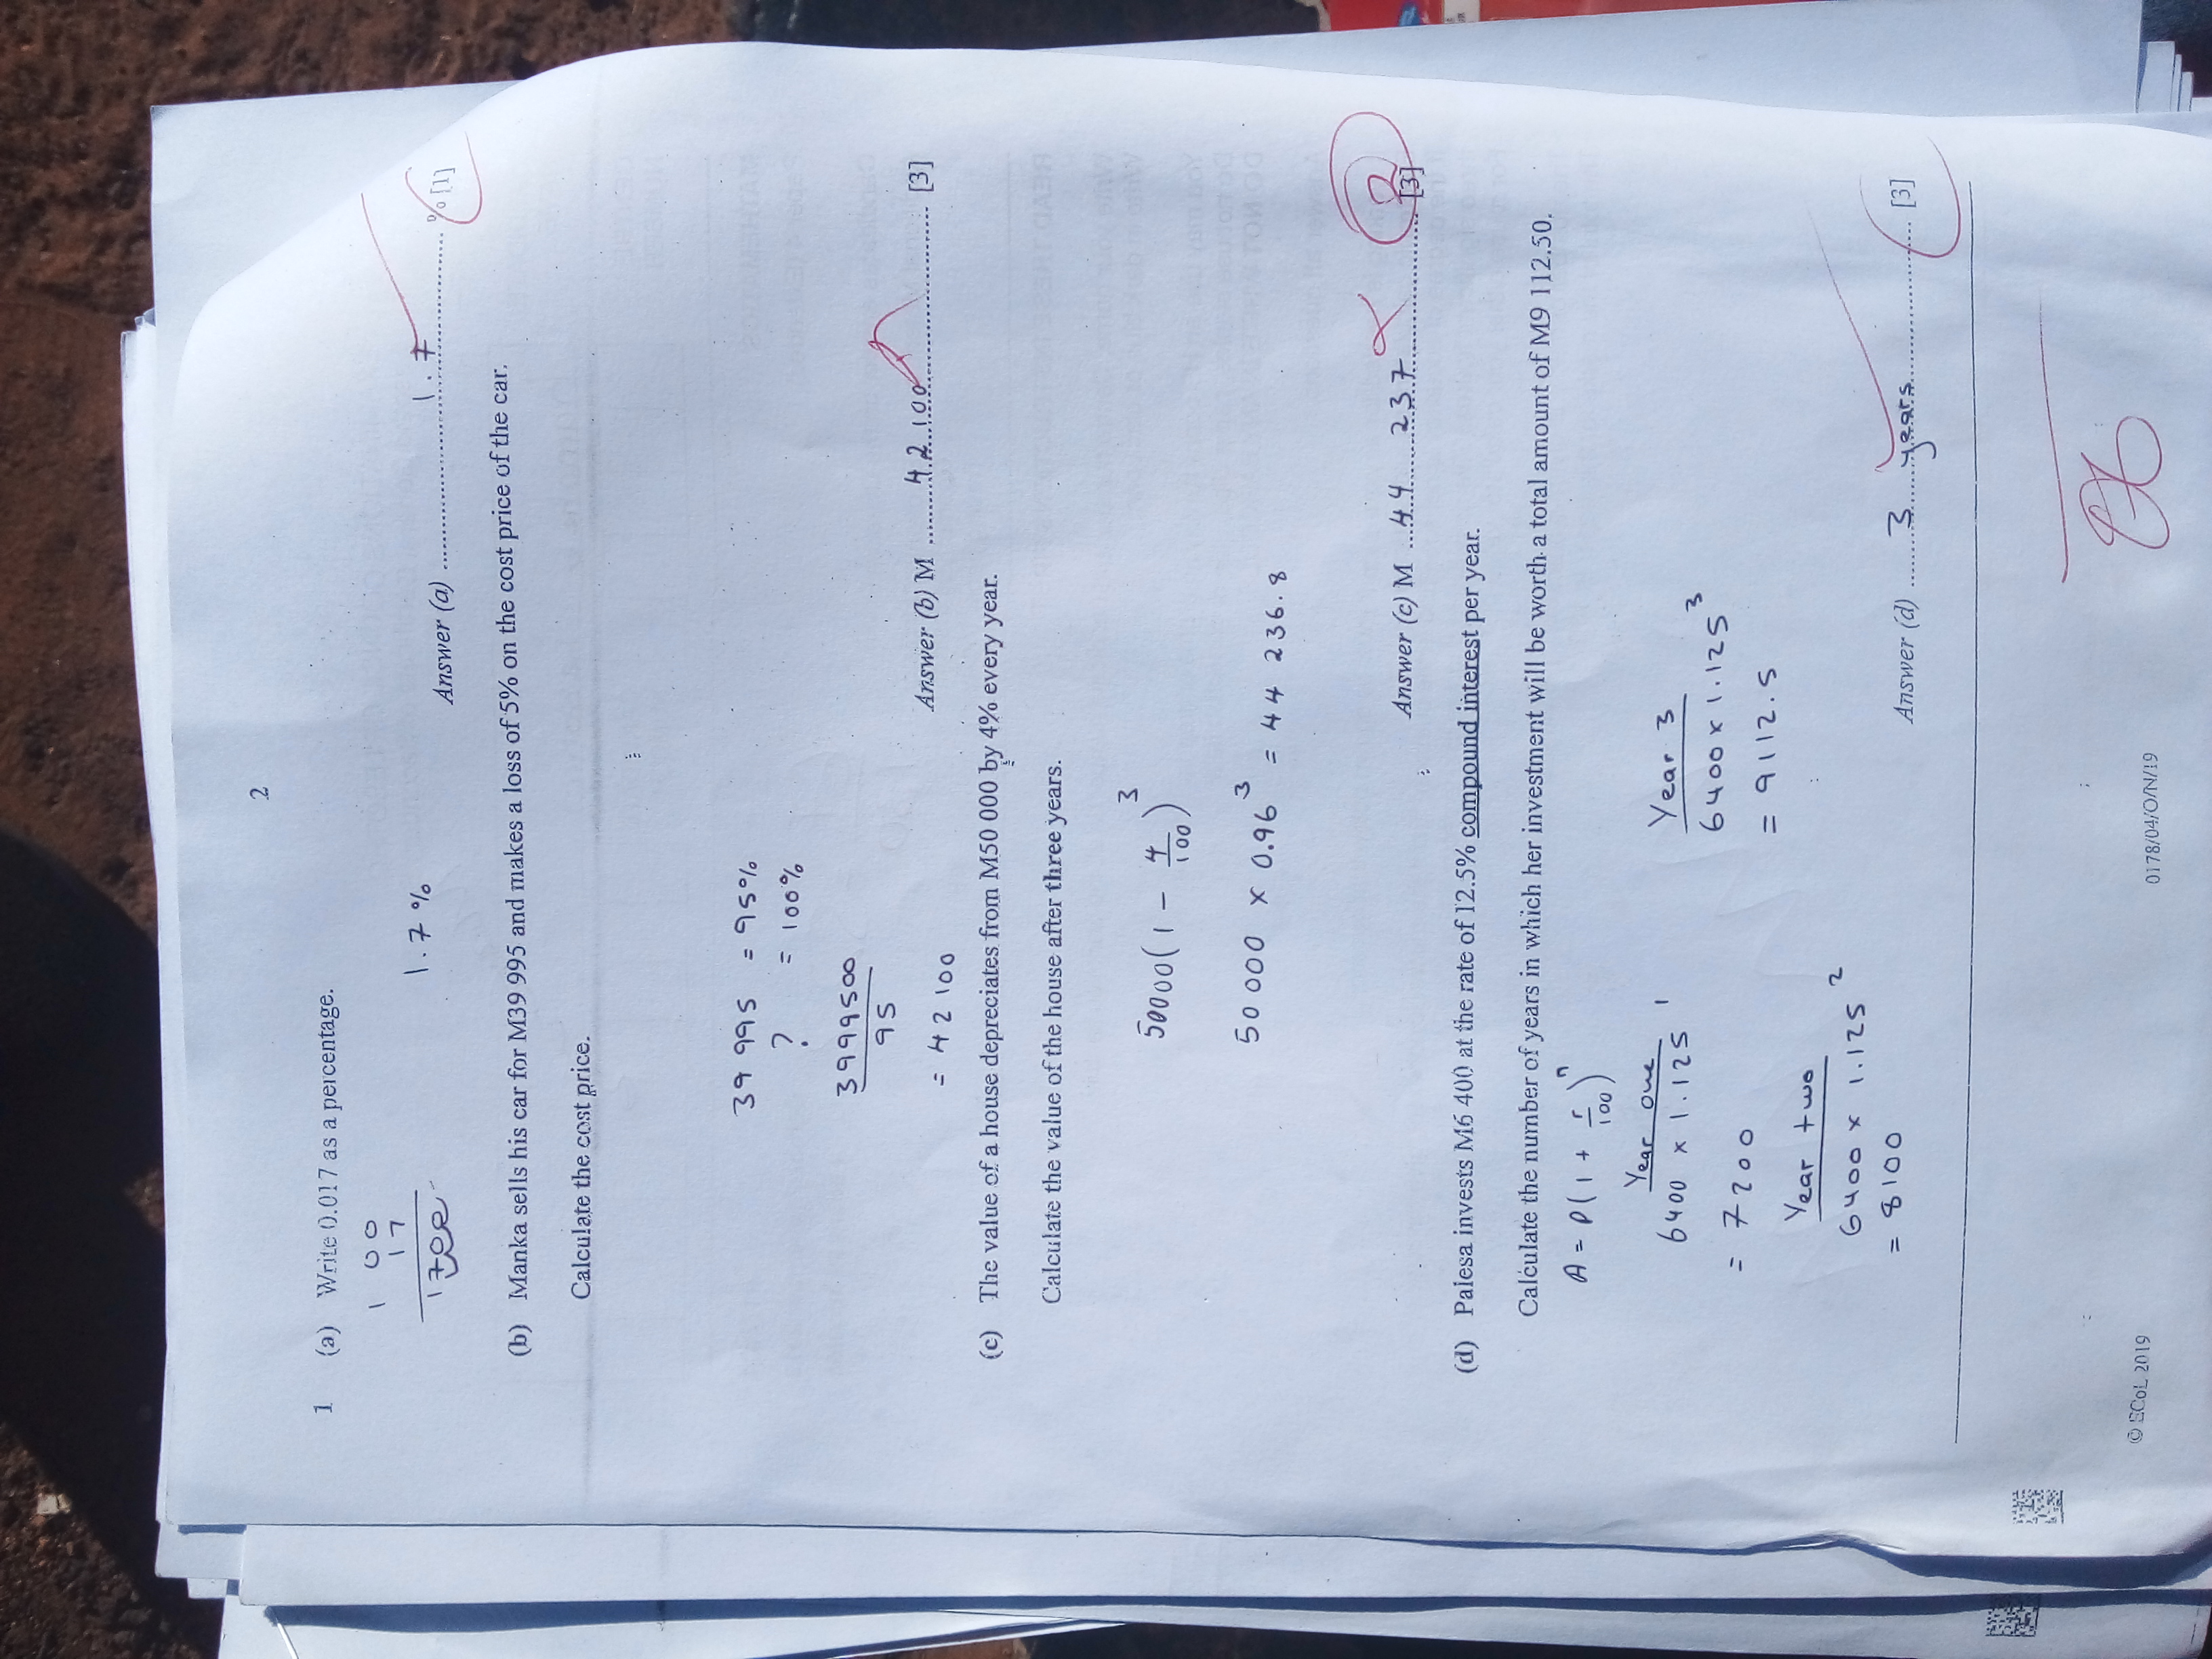 2
1 (a) Write 0.017 as a percentage.
1 00
17
1.7 %
Answer (a) 1.7 % [1]
(b) Manka sells his car for M39 995 and makes a loss of 5% on the cost price of the car.
Calculate the cost price.
39 995 = 95%
? = 100%
3999500
95
= 42 100
Answer (b) M 42 100 [3]
(c) The value of a house depreciates from M50 000 by 4% every year.
Calculate the value of the house after three years.
50000(1 - 4/100)^3
50 000 x 0.96^3 = 44 236.8
2
Answer (c) M 44 237 [3]
(d) Palesa invests M6 400 at the rate of 12.5% compound interest per year.
Calculate the number of years in which her investment will be worth a total amount of M9 112.50.
A = P(1 + r/100)^n
Year one
6400 x 1.125^1
= 7200
Year two
6400 x 1.125^2
= 8100
Year 3
6400 x 1.125^3
= 9112.5
Answer (d) 3 years [3]
06
© ECoL 2019
0178/04/O/N/19